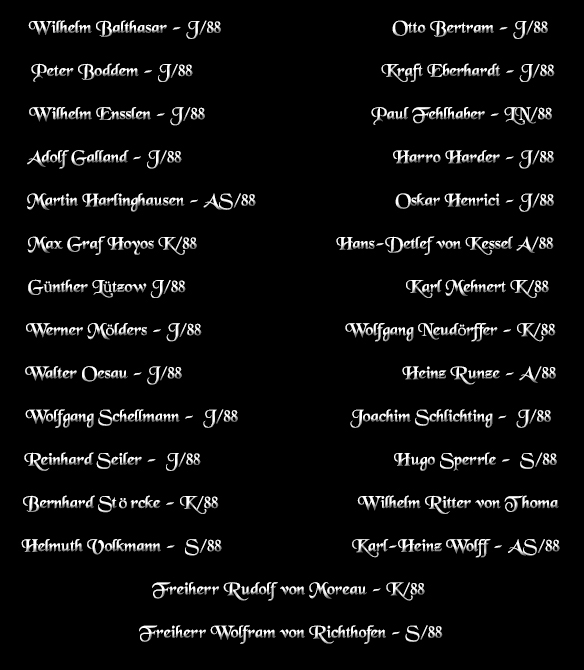 Wilhelm Balthasar - J/88 Otto Bertram - J/88
Peter Boddem - J/88 Kraft Eberhardt - J/88
Wilhelm Ensslen - J/88 Paul Fehlhaber - LN/88
Adolf Galland - J/88 Harro Harder - J/88
Martin Harlinghausen - AS/88 Oskar Henrici - J/88
Max Graf Hoyos K/88 Hans-Detlef von Kessel A/88
Günther Lützow J/88 Karl Mehnert K/88
Werner Mölders - J/88 Wolfgang Neudörffer - K/88
Walter Oesau - J/88 Heinz Runze - A/88
Wolfgang Schellmann - J/88 Joachim Schlichting - J/88
Reinhard Seiler - J/88 Hugo Sperrle - S/88
Bernhard Störcke - K/88 Wilhelm Ritter von Thoma
Helmuth Volkmann - S/88 Karl-Heinz Wolff - AS/88
Freiherr Rudolf von Moreau - K/88
Freiherr Wolfram von Richthofen - S/88